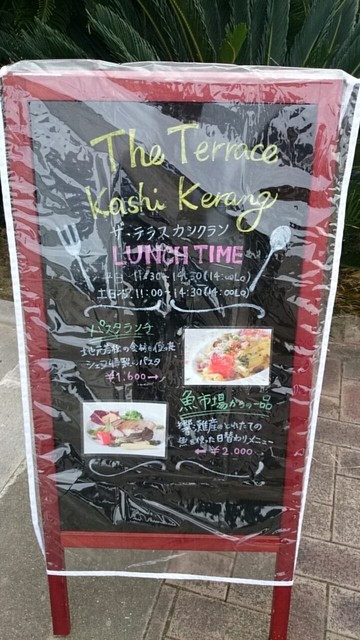 The Terrace
Kashi Kerang
ザ・テラス カシクラン
LUNCH TIME
平日 11:30～14:30 (14:00LO)
土日祝 11:00～14:30 (14:00LO)
パスタランチ
地元 の食材を使った
シェフ特製 パスタ
¥1,600→
魚市場からの一品
響灘産のとれたての
魚を使った日替わりメニュー
←¥2,000